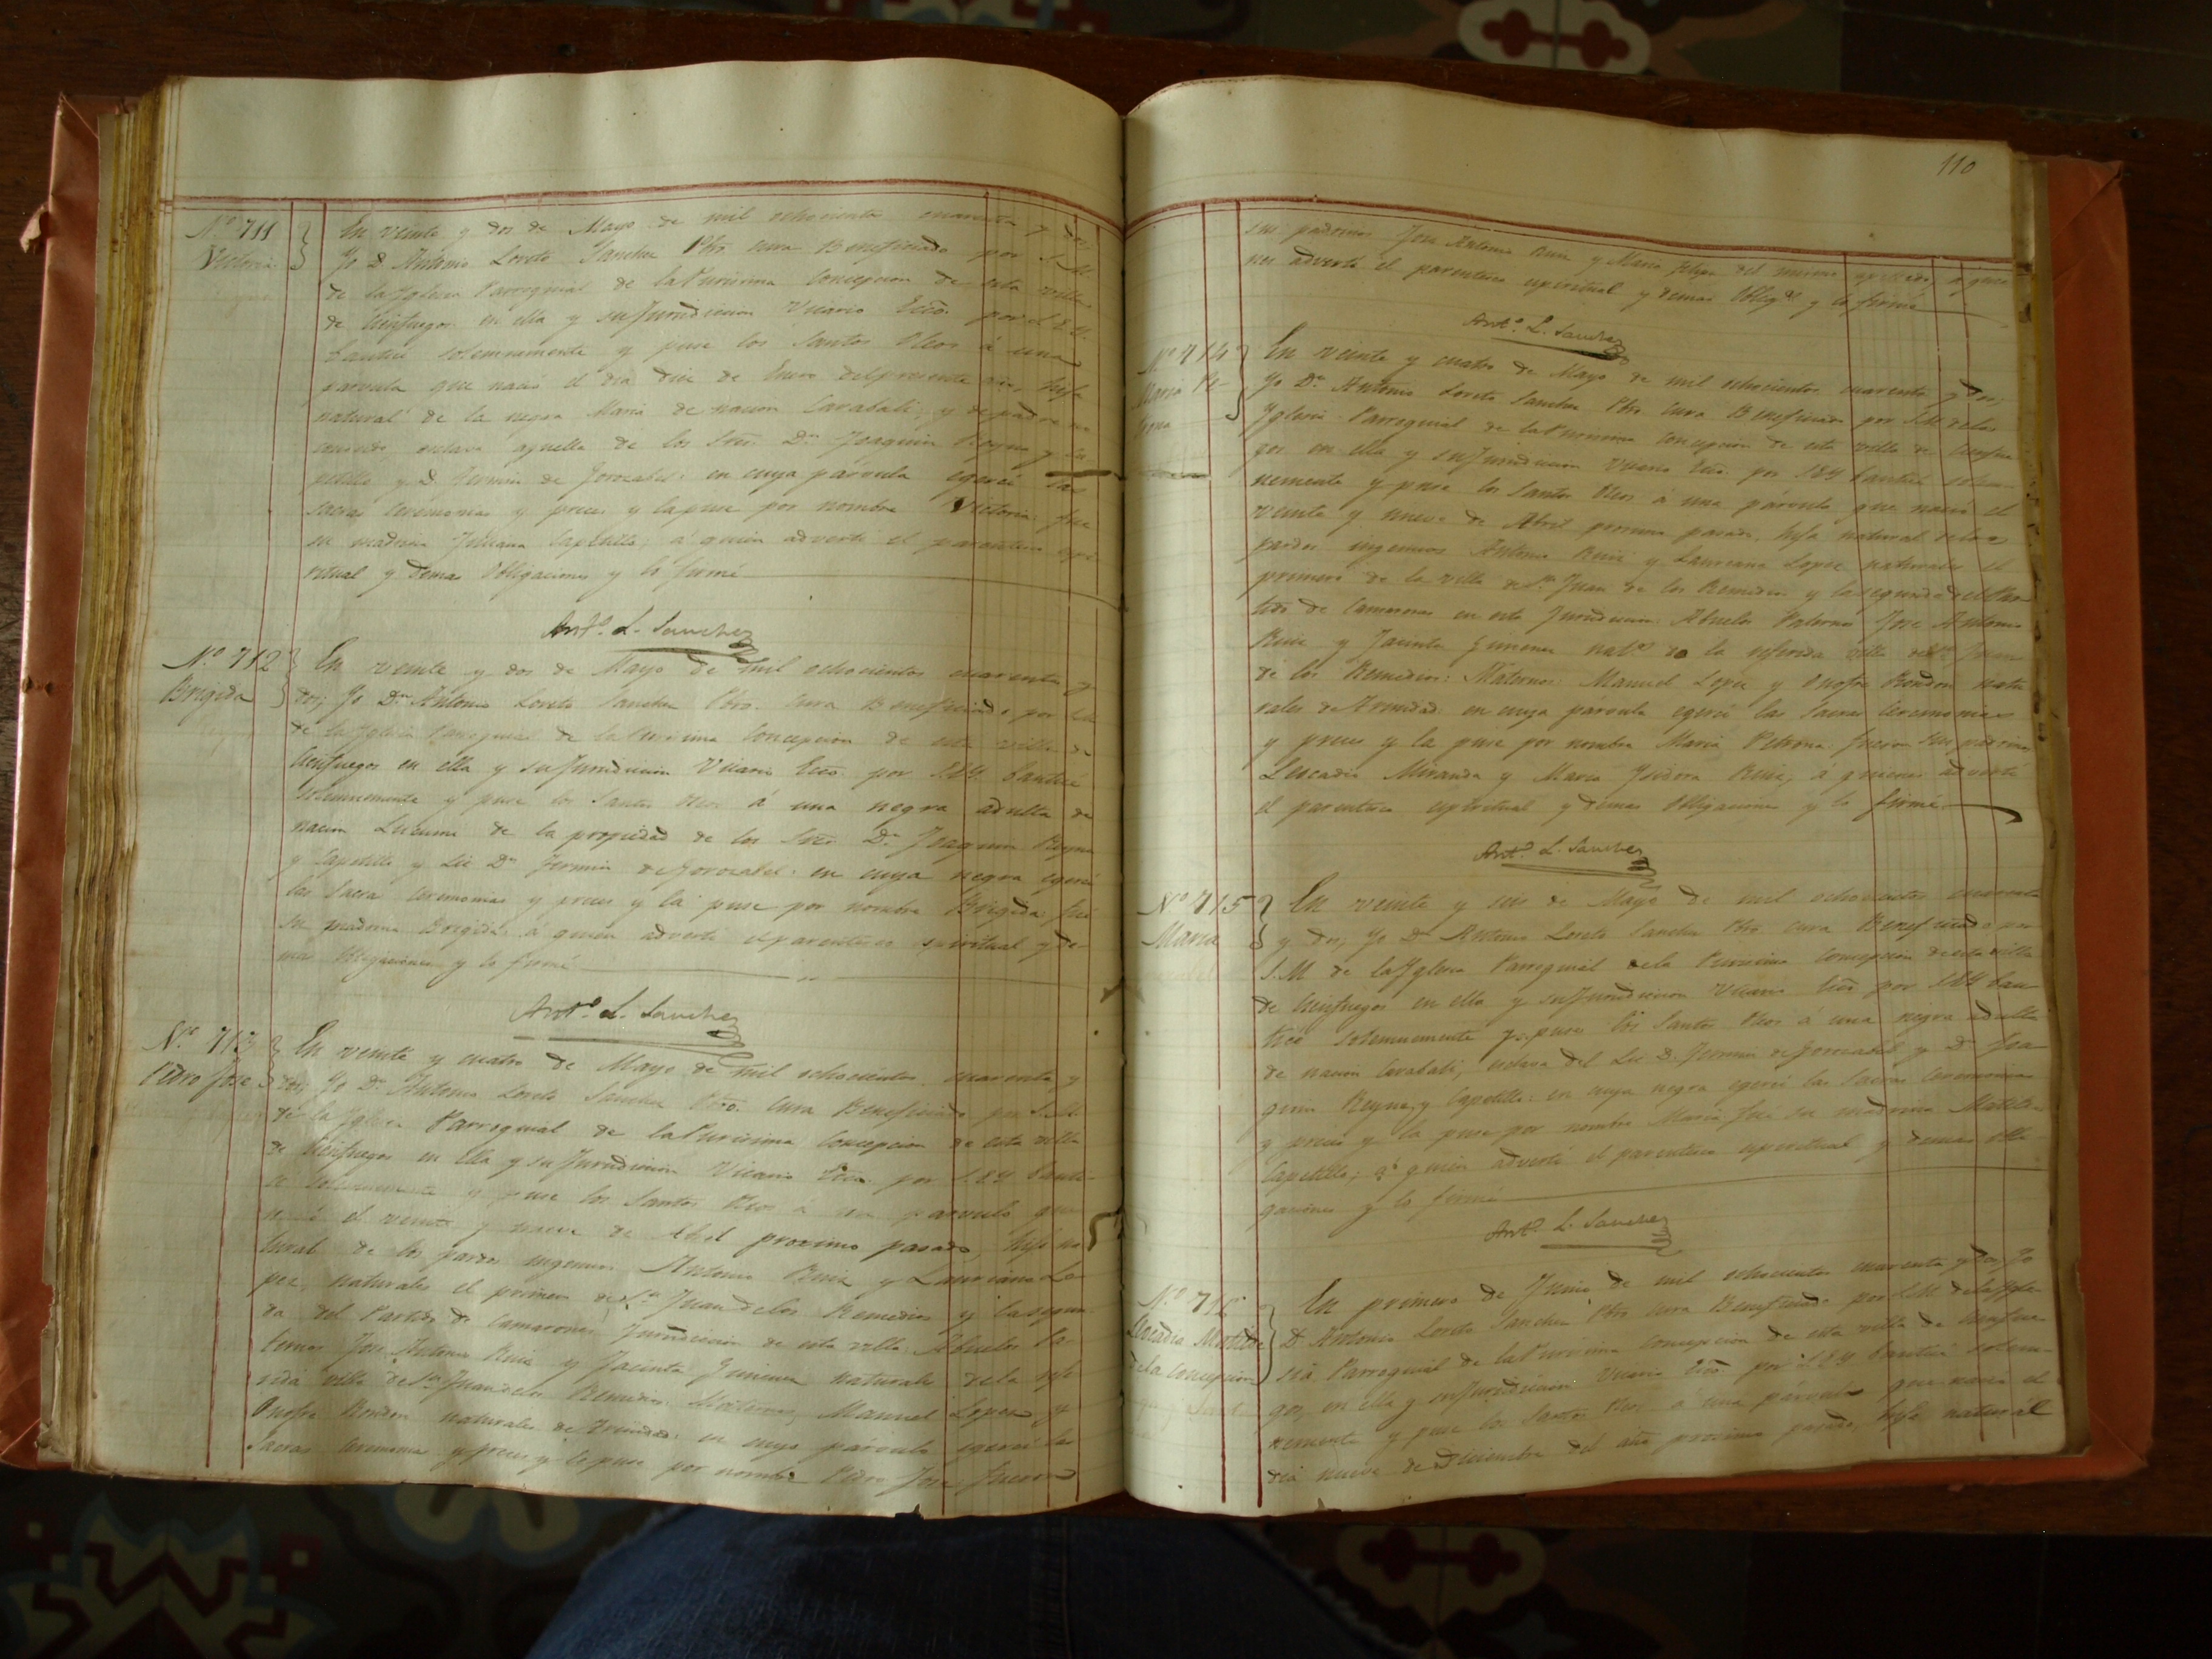 Nº 711
Victoria
En veinte y dos de Mayo de mil ochocientos cuarenta y dos
Yo D. Antonio Loreto Sanchez Pbro. Cura Beneficiado por S.M.
de la Yglesia Parroquial de la Purisima Concepcion de esta villa
de Cienfuegos en ella y su Jurisdiccion Vicario Ecco. por S.E.Y.
bautisé solemnemente y puse los Santos Oleos á una
párvula que nació el dia diez de Enero del presente año, hija
natural de la negra Maria de nacion Carabalí, y de padre no
conocido esclava aquella de los Sres. Dn. Joaquin Reyna y Ca
petillo y D. Fermin de Jorocabel: en cuya párvula egercí las
sacras ceremonias y preces y la puse por nombre Victoria: fue
su madrina Juliana Capetillo; á quien advertí el parentesco espi
ritual y demas obligaciones y lo firmé
Antº. L. Sanchez
Nº 712
Brigida
En veinte y dos de Mayo de mil ochocientos cuarenta y
dos; Yo Dn. Antonio Loreto Sanchez Pbro. Cura Beneficiado por S.M.
de la Yglesia Parroquial de la Purisima Concepcion de esta villa de
Cienfuegos en ella y su Jurisdiccion Vicario Ecco. por S.E.Y. bautisé
solemnemente y puse los Santos Oleos á una negra adulta de
nacion Lucumí de la propiedad de los Sres. Dn. Joaquin Reyna
y Capetillo y Lic. Dn. Fermin de Jorocabel: en cuya negra egercí
las sacras ceremonias y preces y la puse por nombre Brigida: fué
su madrina Brigida: á quien advertí el parentesco espiritual y de
mas obligaciones y lo firmé
Antº. L. Sanchez
Nº 713
Pedro Jose
En veinte y cuatro de Mayo de mil ochocientos cuarenta y
dos; Yo Dn. Antonio Loreto Sanchez Pbro. Cura Beneficiado por S.M.
de la Yglesia Parroquial de la Purisima Concepcion de esta villa
de Cienfuegos en ella y su Jurisdiccion Vicario Ecco. por S.E.Y. bauti
sé solemnemente y puse los Santos Oleos á un párvulo que
nació el veinte y nueve de Abril proximo pasado, hijo na
tural de los pardos ingenuos Antonio Ruiz y Laureana Lo
pez, naturales el primero de Sn. Juan de los Remedios y la segun
da del Partido de Camarones Jurisdiccion de esta villa: Abuelos Pa
ternos Jose Antonio Ruiz y Jacinta Gimenez naturales de la refe
rida villa de Sn. Juan de los Remedios: Maternos, Manuel Lopez y
Onofre Rondon naturales de Trinidad: en cuyo párvulo egercí las
Sacras ceremonias y preces y le puse por nombre Pedro Jose: fueron
110
sus padrinos Jose Antonio Ruiz y Maria Felipa del mismo apellido; á quie
nes advertí el parentesco espiritual y demas obligs. y lo firmé
Antº. L. Sanchez
Nº 714
Maria Pe-
trona
En veinte y cuatro de Mayo de mil ochocientos cuarenta y dos;
Yo Dn. Antonio Loreto Sanchez Pbro. Cura Beneficiado por S.M. de la
Yglesia Parroquial de la Purisima Concepcion de esta villa de Cienfue
gos en ella y su Jurisdiccion Vicario Ecco. por S.E.Y. bautisé solem
nemente y puse los Santos Oleos á una párvula que nació el
veinte y nueve de Abril proximo pasado, hija natural de los
pardos ingenuos Antonio Ruiz y Laureana Lopez naturales el
primero de la villa de Sn. Juan de los Remedios y la segunda del Par
tido de Camarones en esta Jurisdiccion: Abuelos Paternos Jose Antonio
Ruiz y Jacinta Gimenez nats. de la referida villa de Sn. Juan
de los Remedios: Maternos: Manuel Lopez y Onofre Rondon natu
rales de Trinidad: en cuya parvula egercí las Sacras ceremonias
y preces y la puse por nombre Maria Petrona: fueron sus padrinos
Leocadio Miranda y Maria Ysidora Ruiz; á quienes advertí
el parentesco espiritual y demas obligaciones y lo firmé
Antº. L. Sanchez
Nº 715
Maria
En veinte y seis de Mayo de mil ochocientos cuarenta
y dos; Yo Dn. Antonio Loreto Sanchez Pbro. Cura Beneficiado por
S.M. de la Yglesia Parroquial de la Purisima Concepcion de esta villa
de Cienfuegos en ella y su Jurisdiccion Vicario Ecco. por S.E.Y. bau
tisé solemnemente y puse los Santos Oleos á una negra adulta
de nacion Carabalí, esclava del Lic. D. Fermin de Jorocabel y Dn. Joa
quin Reyna y Capetillo: en cuya negra egercí las Sacras ceremonias
y preces y la puse por nombre Maria: fué su madrina Matilde
Capetillo; á quien advertí el parentesco espiritual y demas obli
gaciones y lo firmé
Antº. L. Sanchez
Nº 716
Leocadia Matilde
de la Concepcion
En primero de Junio de mil ochocientos cuarenta y dos; Yo
D. Antonio Loreto Sanchez Pbro. Cura Beneficiado por S.M. de la Ygle
sia Parroquial de la Purisima Concepcion de esta villa de Cienfue
gos, en ella y su Jurisdiccion Vicario Ecco. por S.E.Y. bautisé solem-
nemente y puse los Santos Oleos á una párvula que nació el
dia nueve de Diciembre del año proximo pasado, hija natural